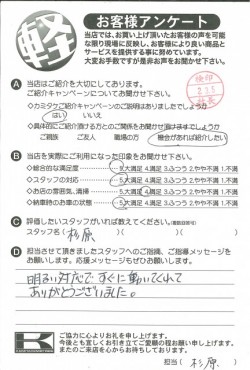 軽
お客様アンケート
当店では、お買い上げ頂いたお客様の声を可能
な限り現場に反映し、お客様により良い商品と
サービスを提供する事に努めています。
大変お手数ですが是非お声をお聞かせ下さい。
A 当店はご紹介を大切にしております。
ご紹介キャンペーンについてお聞かせ下さい。
◇カミタケご紹介キャンペーンのご説明はありましたでしょうか
はい いいえ
◇具体的にご紹介頂ける方とのご関係をお聞かせ頂けますでしょうか
ご親族 ご友人 職場の方 機会があれば紹介したい
B 当店を実際にご利用になった印象をお聞かせ下さい。
◇総合的な満足度 5.大満足 4.満足 3.ふつう 2.やや不満 1.不満
◇スタッフの対応 5.大満足 4.満足 3.ふつう 2.やや不満 1.不満
◇お店の雰囲気、清掃 5.大満足 4.満足 3.ふつう 2.やや不満 1.不満
◇納車時のお車の状態 5.大満足 4.満足 3.ふつう 2.やや不満 1.不満
C 評価したいスタッフがいれば教えてください。(複数回答可)
スタッフ名( 杉原 )
D 担当させて頂きましたスタッフへのご指摘、ご指導メッセージを
お願いします。応援メッセージもぜひお願いします。
明るい対応で すぐに動いてくれて
ありがとうございました。
K
ご協力に心よりお礼を申し上げます。
今後とも宜しくお引き立てご愛顧の程お願い申し上げます。
またのご来店を心からお待ちしております。
担当( 杉原 )